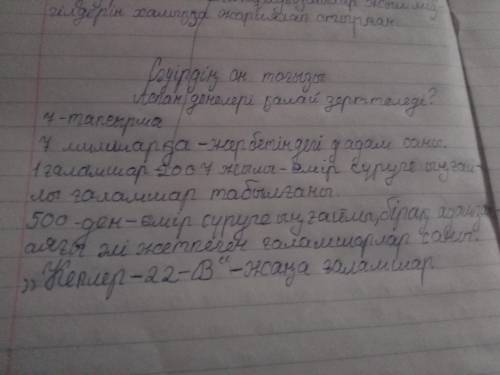 гілдерін халыққа жариялап отырған.
Сәуірдің он тоғызы
Аспан денелері қалай зерттеледі?
7-тапсырма
7 миллиарда - жер бетіндегі адам саны.
1 ғаламшар 2007 жылы - өмір сүруге ыңғай-
лы ғаламшар табылғаны.
500-ден - өмір сүруге ыңғайлы, бірақ адамның
аяғы әлі жетпеген ғаламшарлар саны.
„Кеплер-22-В“ - жаңа ғаламшар